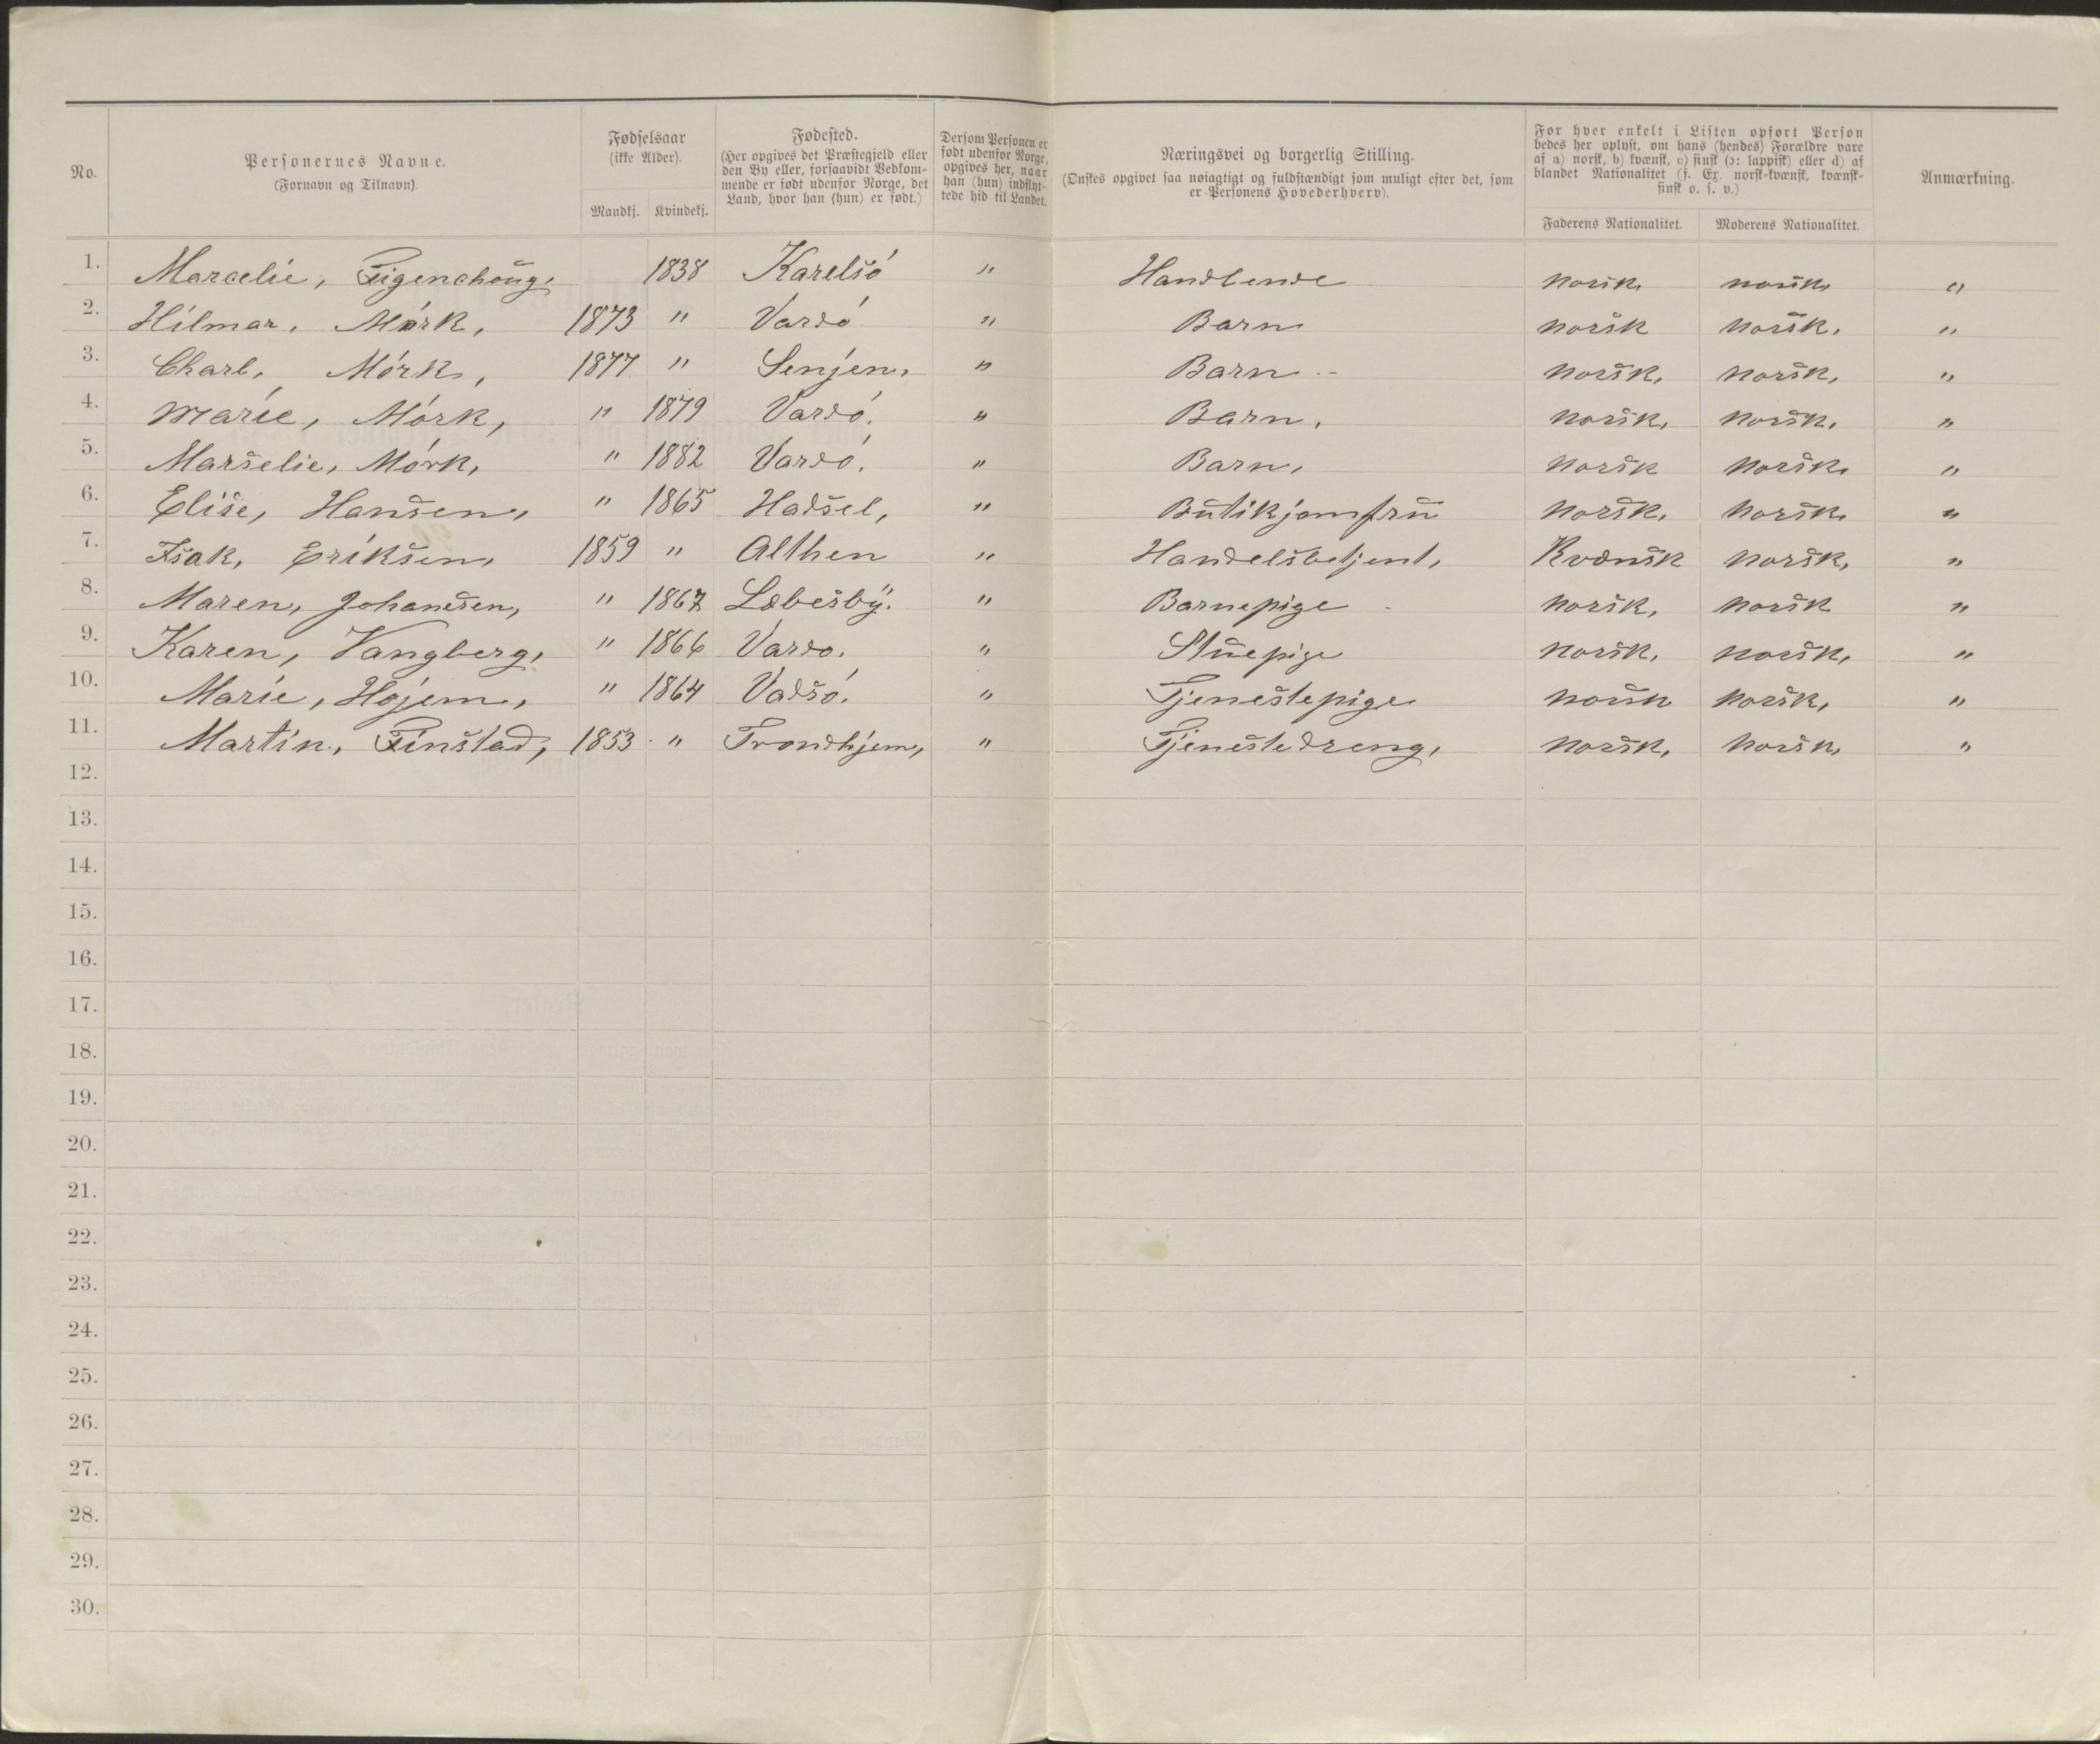 No.
Personernes Navne.
(Fornavn og Tilnavn).
Fødselsaar
(ikke Alder).
Mandkj. Kvindekj.
Fødested.
(Her opgives det Præstegjeld eller
den By eller, forsaavidt Vedkom-
mende er født udenfor Norge, det
Land, hvor han (hun) er født.)
Dersom Personen er
født udenfor Norge,
opgives her, naar
han (hun) indflyt-
tede hid til Landet.
Næringsvei og borgerlig Stilling.
(Ønskes opgivet saa nøiagtigt og fuldstændigt som muligt efter det, som
er Personens Hovederhverv).
For hver enkelt i Listen opført Person
bedes her oplyst, om hans (hendes) Forældre vare
af a) norsk, b) kvænsk, c) finsk (ɔ: lappisk) eller d) af
blandet Nationalitet (f. Ex. norsk-kvænsk, kvænsk-
finsk o. s. v.)
Faderens Nationalitet. Moderens Nationalitet.
Anmærkning.
1. Marcelie, 1838 Karelsö " Handlende norsk norsk "
2. Hilmar, Mörk, 1873 " Vardö " Barn norsk norsk, "
3. Charl, Mörk, 1877 " Senjen, " Barn norsk, norsk, "
4. Marie, Mörk, " 1879 Vardö. " Barn, norsk, norsk, "
5. Marselie, Mörk, " 1882 Vardö. " Barn, norsk norsk "
6. Elise, Hansen, " 1865 Hadsel, " Butikjomfru norsk, norsk "
7. Isak, Eriksen, 1859 " Althen " Handelsbetjent, Kvænsk norsk, "
8. Maren, Johansen, " 1867 Læbesby. " Barnepige norsk, norsk "
9. Karen, Vangberg, " 1866 Vardo. " Stuepige norsk, norsk, "
10. Marie, Hojem, " 1864 Vadsö. " Tjenestepige norsk norsk, "
11. Martin, Finstad, 1853 " Trondhjem, " Tjenestedreng, norsk, norsk, "
12.
13.
14.
15.
16.
17.
18.
19.
20.
21.
22.
23.
24.
25.
26.
27.
28.
29.
30.